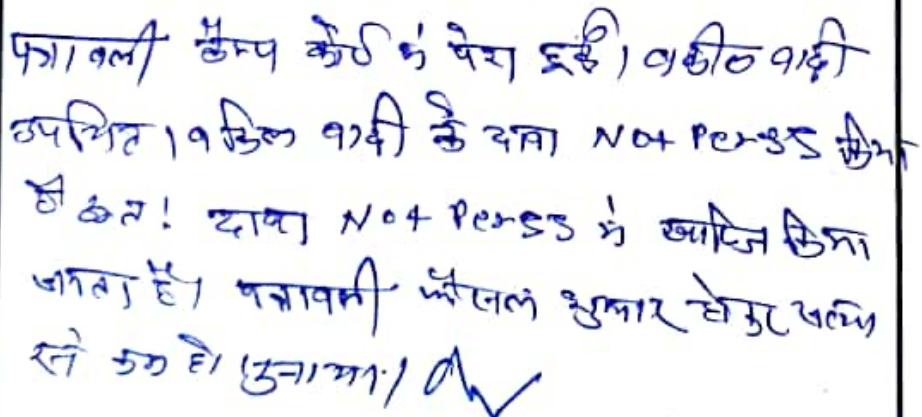 पत्रावली कैम्प कोर्ट में पेश हुई। वकील वादी
उपस्थित। वकिल वादी ने दावा Not Perss किया
है अतः! दावा Not Perss में खारिज किया
जाता है। पत्रावली फैसल शुमार होकर
से कम हो। सुनाया।